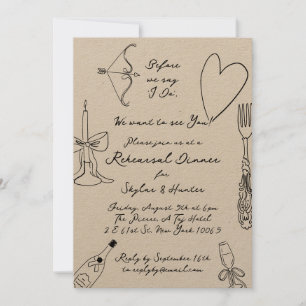 Before
we say
'I Do',
We want to see You!
Please join us at a
Rehearsal Dinner
for
Skylar & Hunter
Friday, August 9th at 6pm
The Pierre, A Taj Hotel
2 E 61st St. New York 10065
Reply by September 16th
to replyby@email.com